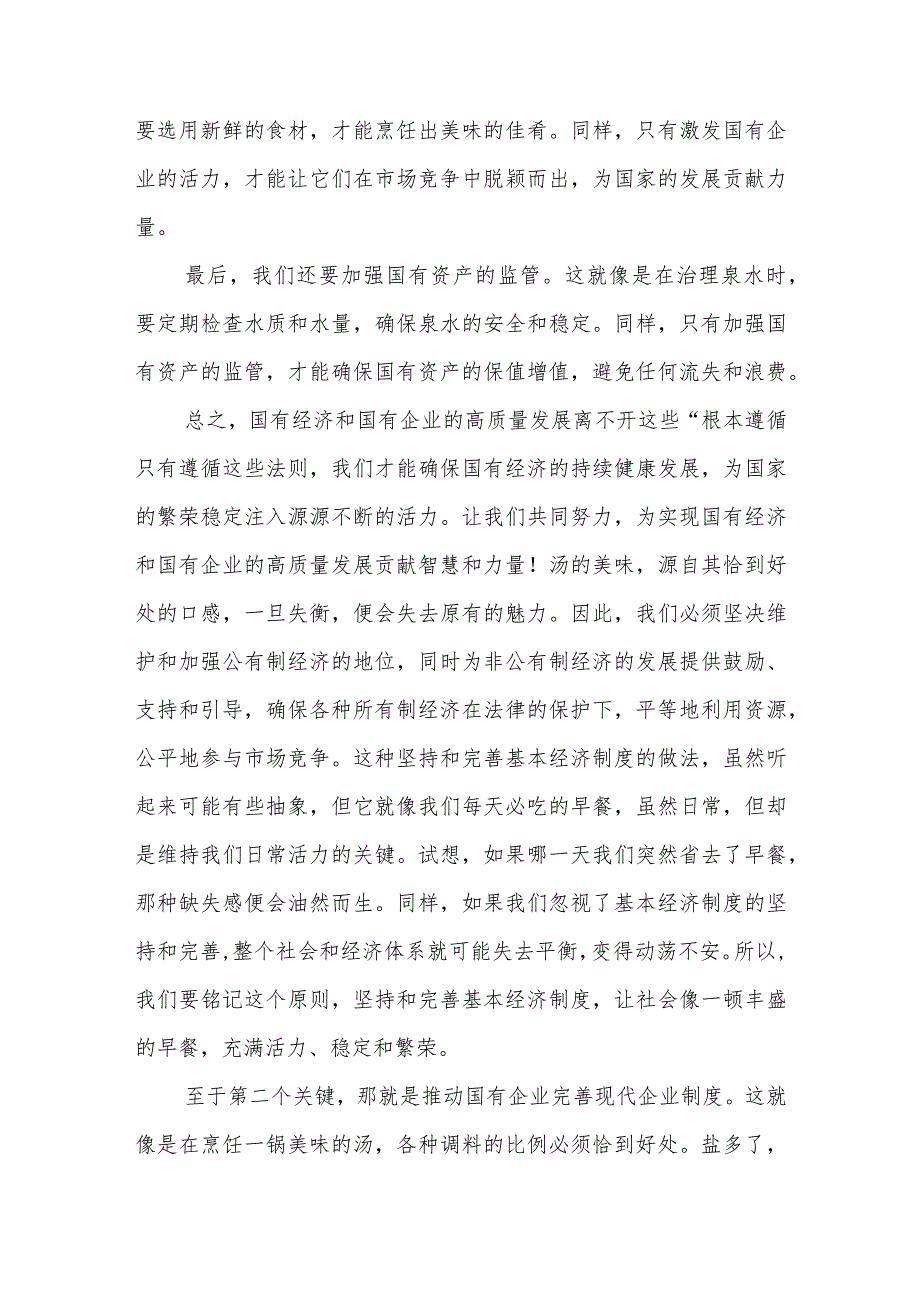 要选用新鲜的食材，才能烹饪出美味的佳肴。同样，只有激发国有企
业的活力，才能让它们在市场竞争中脱颖而出，为国家的发展贡献力
量。
最后，我们还要加强国有资产的监管。这就像是在治理泉水时，
要定期检查水质和水量，确保泉水的安全和稳定。同样，只有加强国
有资产的监管，才能确保国有资产的保值增值，避免任何流失和浪费。
总之，国有经济和国有企业的高质量发展离不开这些“根本遵循
只有遵循这些法则，我们才能确保国有经济的持续健康发展，为国家
的繁荣稳定注入源源不断的活力。让我们共同努力，为实现国有经济
和国有企业的高质量发展贡献智慧和力量！汤的美味，源自其恰到好
处的口感，一旦失衡，便会失去原有的魅力。因此，我们必须坚决维
护和加强公有制经济的地位，同时为非公有制经济的发展提供鼓励、
支持和引导，确保各种所有制经济在法律的保护下，平等地利用资源，
公平地参与市场竞争。这种坚持和完善基本经济制度的做法，虽然听
起来可能有些抽象，但它就像我们每天必吃的早餐，虽然日常，但却
是维持我们日常活力的关键。试想，如果哪一天我们突然省去了早餐，
那种缺失感便会油然而生。同样，如果我们忽视了基本经济制度的坚
持和完善,整个社会和经济体系就可能失去平衡，变得动荡不安。所以,
我们要铭记这个原则，坚持和完善基本经济制度，让社会像一顿丰盛
的早餐，充满活力、稳定和繁荣。
至于第二个关键，那就是推动国有企业完善现代企业制度。这就
像是在烹饪一锅美味的汤，各种调料的比例必须恰到好处。盐多了，